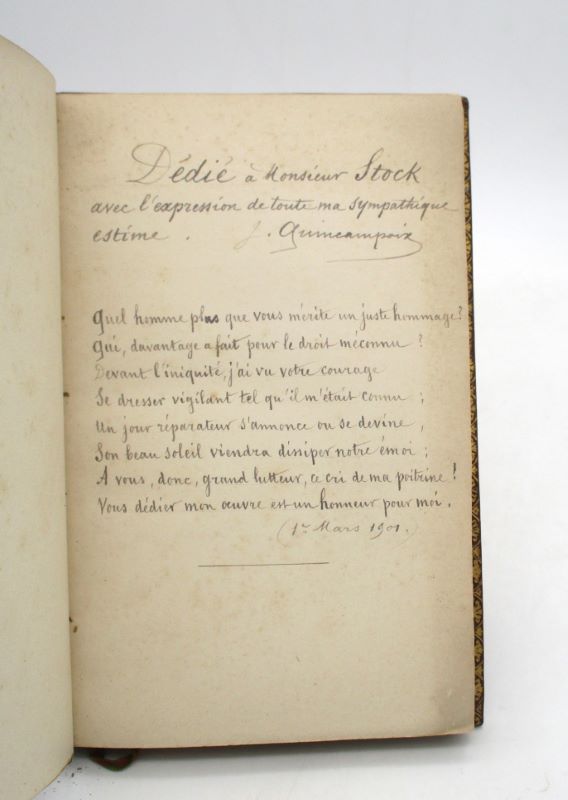 Dédié à Monsieur Stock
avec l'expression de toute ma sympathique
estime. J. Quincampoix
Quel homme plus que vous mérite un juste hommage ?
Qui, davantage a fait pour le droit méconnu ?
Devant l'iniquité, j'ai vu votre courage
Se dresser vigilant tel qu'il m'était connu ;
Un jour réparateur s'annonce ou se devine,
Son beau soleil viendra dissiper notre émoi ;
A vous, donc, grand lutteur, ce cri de ma poitrine !
Vous dédier mon œuvre est un honneur pour moi.
(1er Mars 1901.)